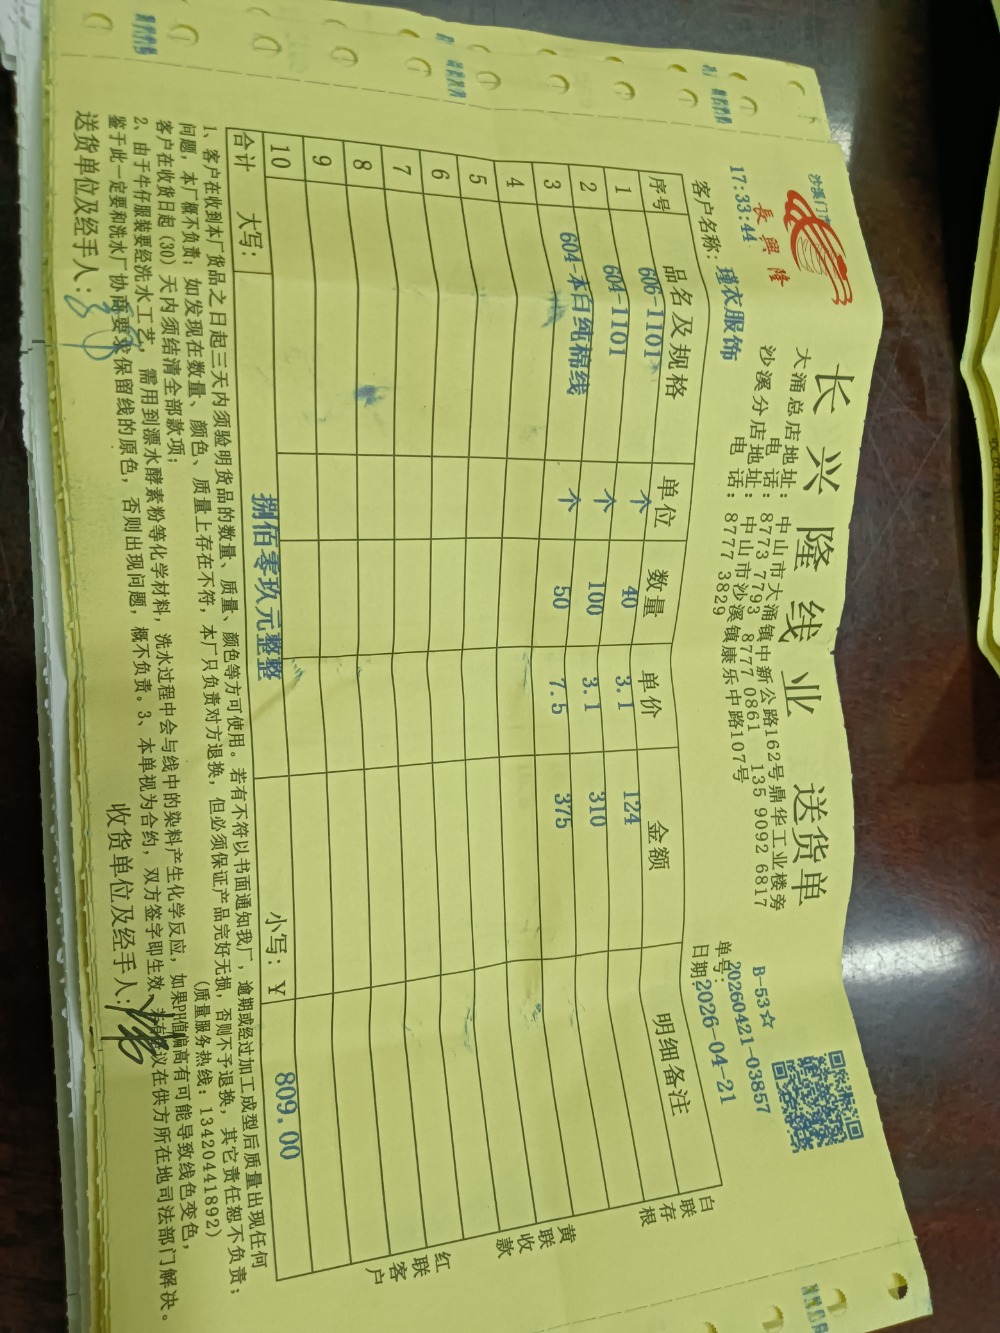 長興隆
长兴隆线业 送货单
大涌总店地址：中山市大涌镇中新公路162号鼎华工业楼旁
电 话：8773 7793 8777 0861 135 9092 6817
沙溪分店地址：中山市沙溪镇康乐中路107号
电 话：8777 3829
沙溪门
17:33:44
B-53☆
单号：20260421-03857
客户名称：瑾衣服饰
日期2026-04-21
序号 品名及规格 单位 数量 单价 金额 明细备注
1 606-1101 个 40 3.1 124
2 604-1101 个 100 3.1 310
3 604-本白纯棉线 个 50 7.5 375
4
5
6
7
8
9
10
合计 大写： 捌佰零玖元整整 小写：¥ 809.00
白联存根
黄联收款
红联客户
1、客户在收到本厂货品之日起三天内须验明货品的数量、质量、颜色等方可使用。若有不符以书面通知我厂，逾期或经过加工成型后质量出现任何
问题，本厂概不负责；如发现在数量、颜色、质量上存在不符，本厂只负责对方退换，但必须保证产品完好无损，否则不予退换，其它责任恕不负责；
客户在收货日起（30）天内须结清全部款项；
（质量服务热线：13420441892）
2、由于牛仔服装要经洗水工艺，需用到漂水酵素粉等化学材料，洗水过程中会与线中的染料产生化学反应，如果PH值偏高有可能导致线色变色，
鉴于此一定要和洗水厂协商要求保留线的原色，否则出现问题，概不负责。3、本单视为合约，双方签字即生效，若有争议在供方所在地司法部门解决。
送货单位及经手人：
收货单位及经手人：